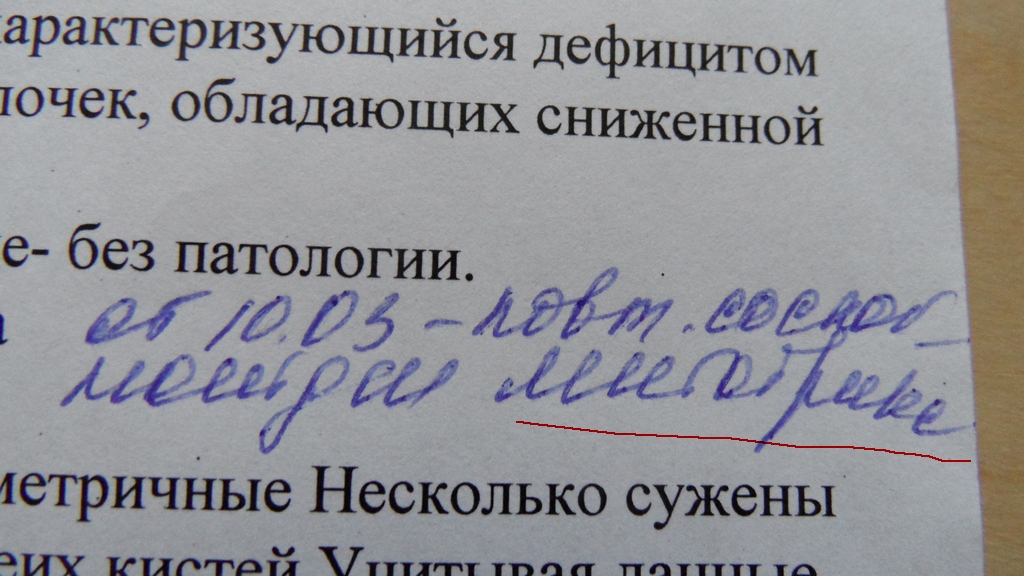 характеризующийся дефицитом
почек, обладающих сниженной
е- без патологии.
а от 10.03 - повт. соскоб
метричные Несколько сужены
еих кистей Учитывая данные